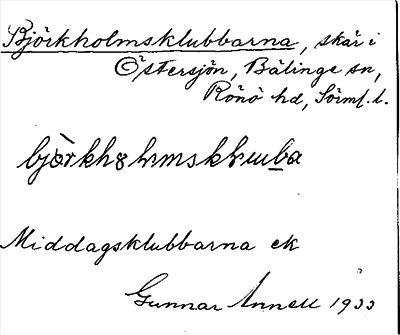 Björkholmsklubbarna, skär i
Östersjön, Bälinge sn,
Rönö hd, Sörml. l.
Middagsklubbarna ek
Gunnar Annell 1933